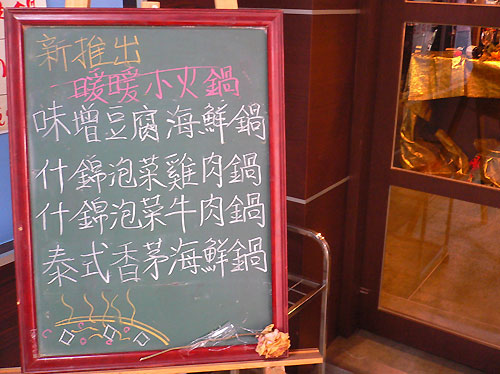 新推出
暖暖小火鍋
味增豆腐海鮮鍋
什錦泡菜雞肉鍋
什錦泡菜牛肉鍋
泰式香茅海鮮鍋